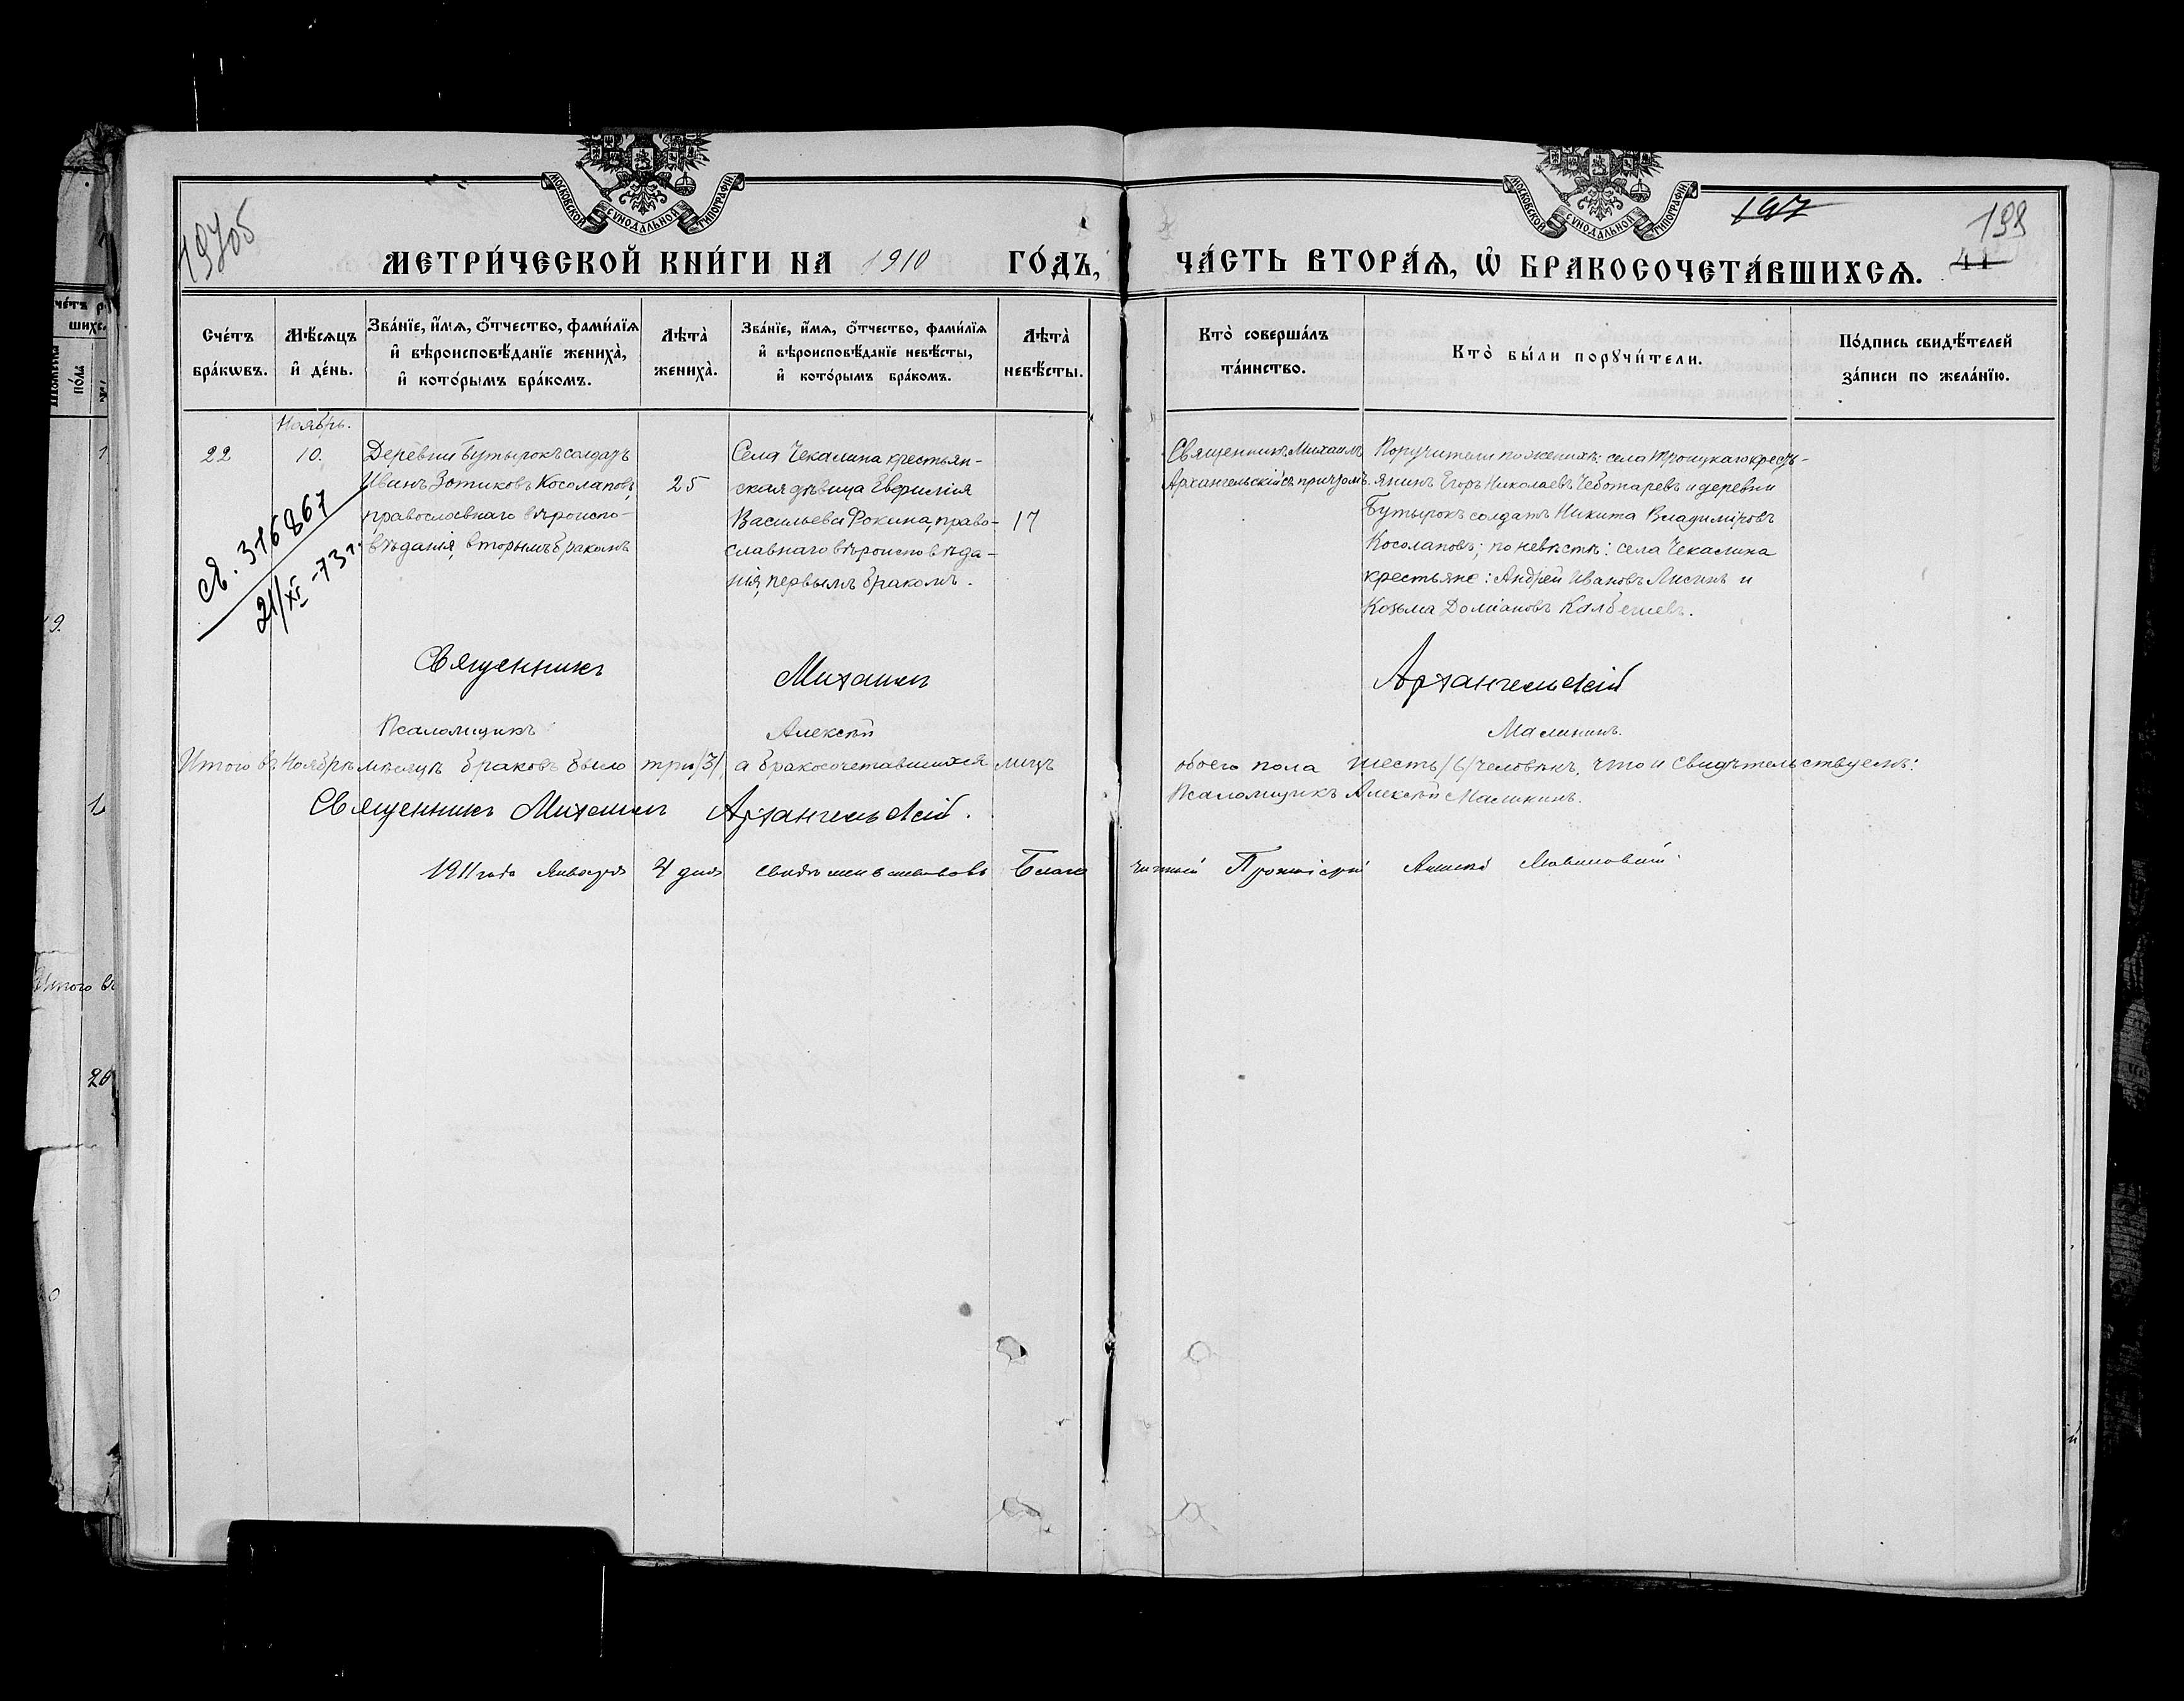 МОСКОВСКОЙ СУНОДАЛЬНОЙ ТИПОГРАФИИ.
МОСКОВСКОЙ СУНОДАЛЬНОЙ ТИПОГРАФИИ.
197
198
41
МЕТРИ́ЧЕСКОЙ КНИ́ГИ НА 1910 ГО́ДЪ, ЧА́СТЬ ВТОРА́Ѧ, Ѡ҆ БРАКОСОЧЕТА́ВШИХСѦ.
Сче́тъ бра́кѡвъ.
Мѣ́сѧцъ и҆ де́нь.
Зва́нїе, и҆́мѧ, ѻ҆́тчество, фами́лїѧ
и҆ вѣроисповѣ́данїе жениха̀,
и҆ кото́рымъ бра́комъ.
Лѣта̀ жениха̀.
Зва́нїе, и҆́мѧ, ѻ҆́тчество, фами́лїѧ
и҆ вѣроисповѣ́данїе невѣ́сты,
и҆ кото́рымъ бра́комъ.
Лѣта̀ невѣ́сты.
Кто̀ соверша́лъ
та́инство.
Кто̀ бы́ли порꙋчи́тели.
По́дпись свидѣ́телей
за́писи по жела́нїю.
Ноябрь.
22
10.
Деревни Бутырокъ солдатъ
Иванъ Зотиковъ Косолаповъ,
православнаго вѣроиспо-
вѣданія, вторымъ бракомъ
25
Села Чекалина крестьян-
ская дѣвица Евфимія
Васильева Фокина, право-
славнаго вѣроисповѣда-
нія, первымъ бракомъ.
17
Священникъ Михаилъ
Архангельскій съ причтомъ.
Поручители по женихѣ: села Троицкаго кресть-
янинъ Егоръ Николаевъ Чеботаревъ и деревни
Бутырокъ солдатъ Никита Владиміровъ
Косолаповъ; по невѣстѣ: села Чекалина
крестьяне: Андрей Ивановъ Лисинъ и
Козьма Доміановъ
св. 316867
21/XI -73 г.
Священникъ Михаилъ Архангельскій
Псаломщикъ Алексѣй Малининъ.
Итого въ Ноябрѣ мѣсяцѣ браковъ было три /3/, а бракосочетавшихся лицъ обоего пола шесть /6/ человѣкъ, что и свидѣтельствуемъ:
Священникъ Михаилъ Архангельскій. Псаломщикъ Алексѣй Малининъ.
1911 года Января 4 дня свидѣтельствовалъ Благочинный Протоіерей